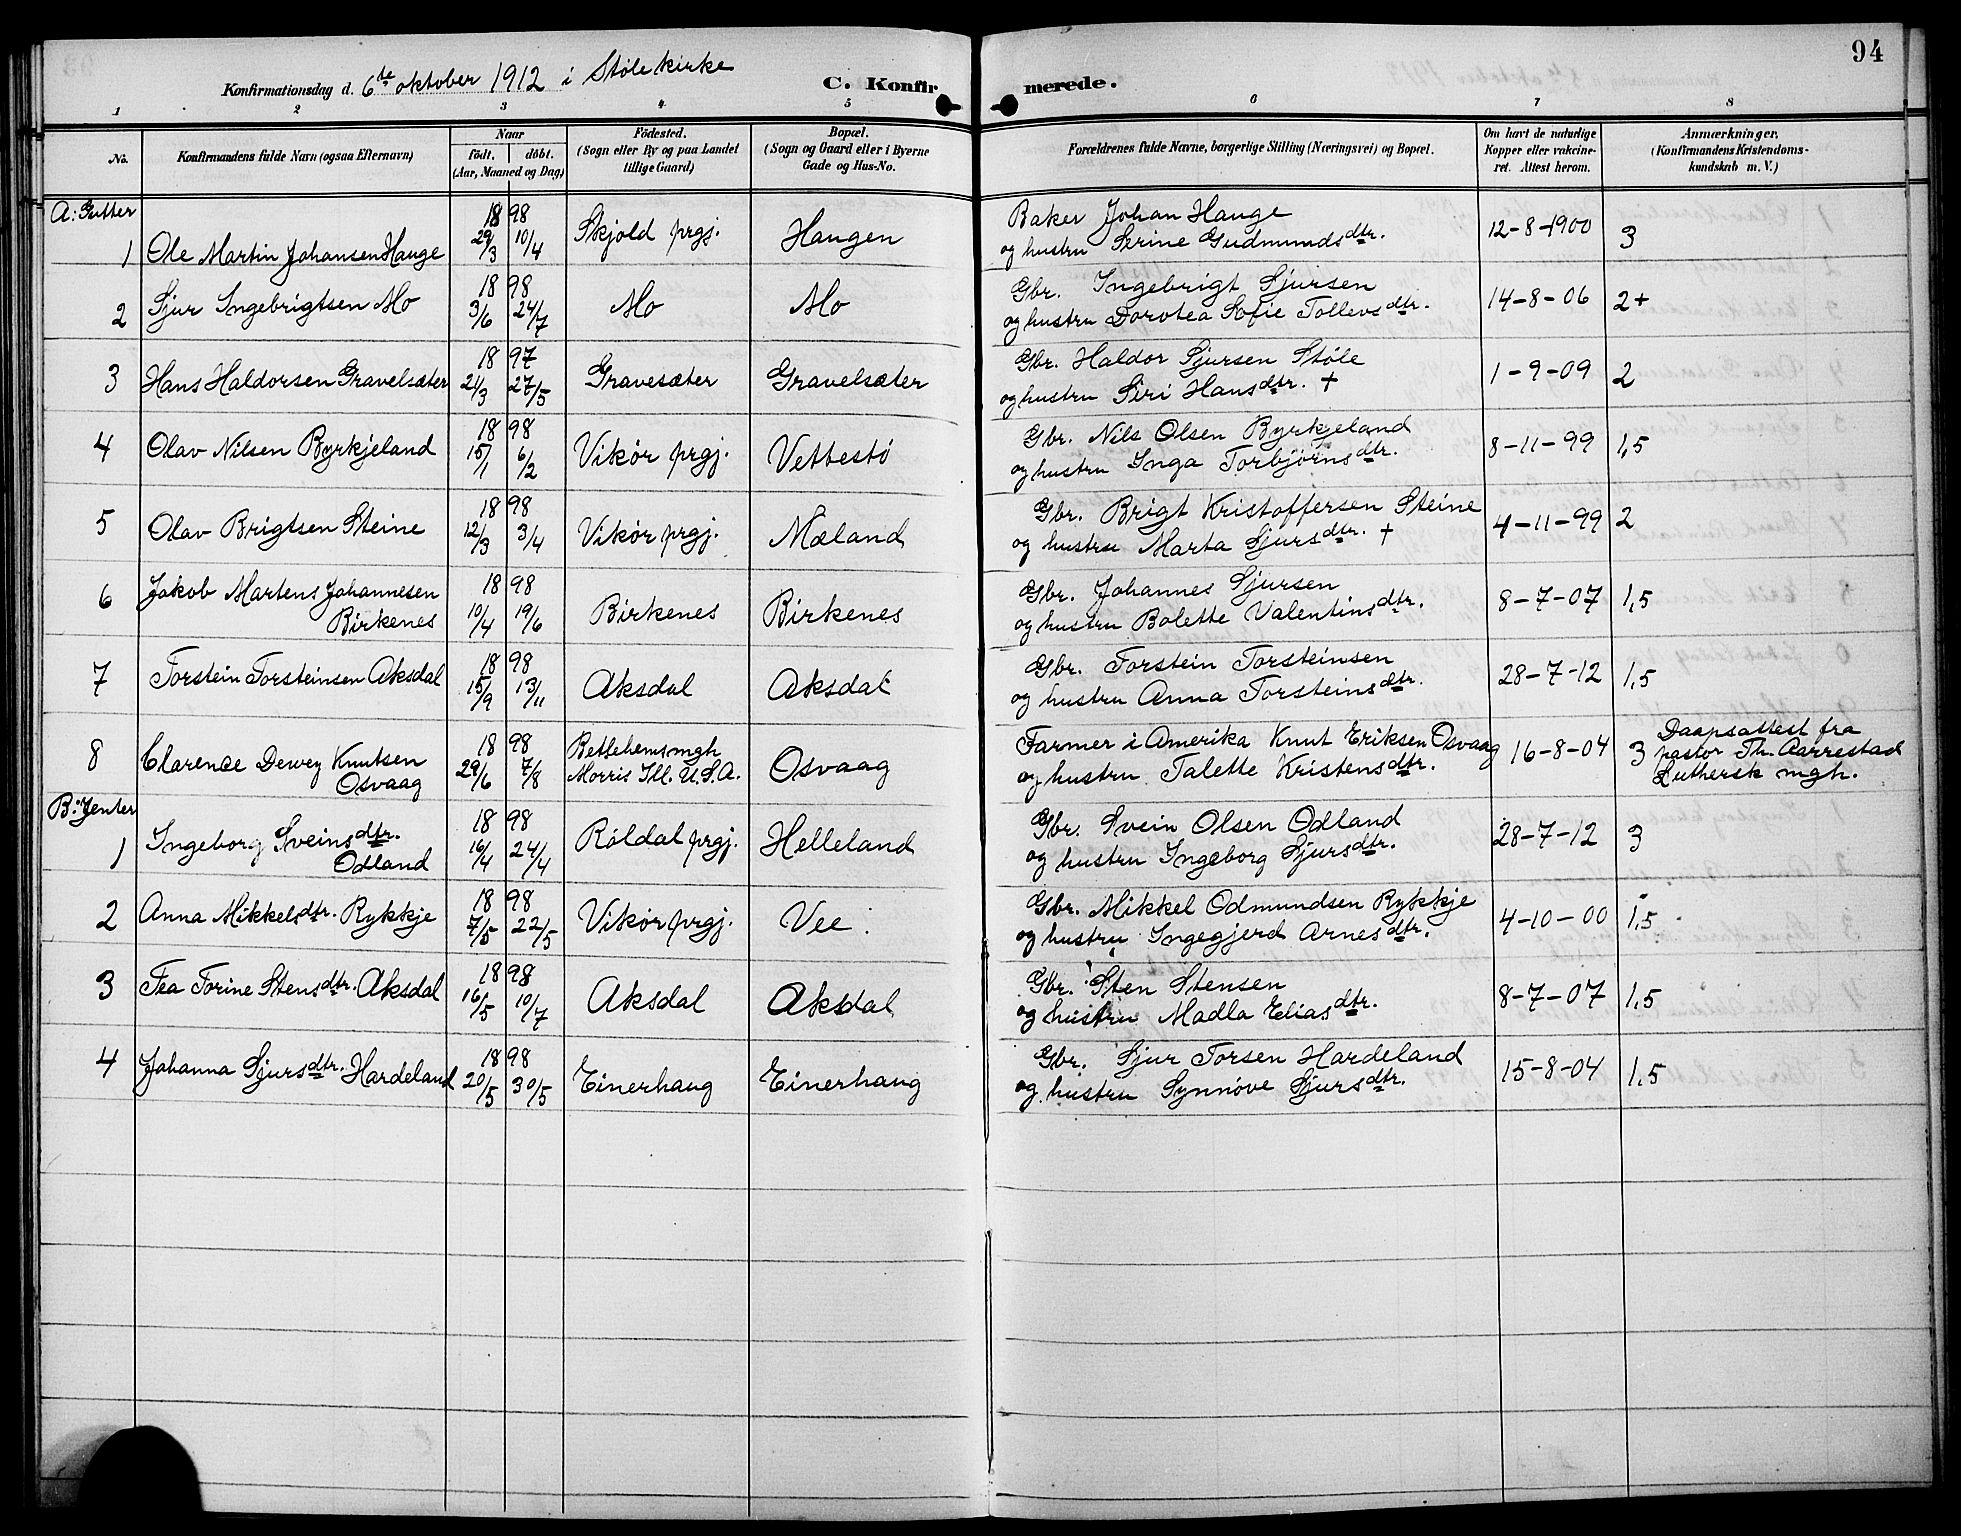 94
Konfirmationsdag d. 6te oktober 1912 i Støle kirke
C. Konfirmerede.
1 2 3 4 5 6 7 8
No. Konfirmandens fulde Navn (ogsaa Efternavn) Naar født. døbt. (Aar, Maaned og Dag) Fødested. (Sogn eller By og paa Landet tillige Gaard) Bopæl. (Sogn og Gaard eller i Byerne Gade og Hus-No. Forældrenes fulde Navne, borgerlige Stilling (Næringsvei) og Bopæl. Om havt de naturlige Kopper eller vakcineret. Attest herom. Anmærkninger. (Konfirmandens Kristendomskundskab m. V.)
A: Gutter
1 Ole Martin Johansen Hauge 1898 29/3 10/4 Skjold prgj. Haugen Baker Johan Hauge og hustru Serine Gudmundsdtr. 12-8-1900 3
2 Sjur Ingebrigtsen Mo 1898 3/6 24/7 Mo Mo Gbr. Ingebrigt Sjursen og hustru Dorotea Sofie Tollevsdtr. 14-8-06 2+
3 Hans Haldorsen Gravelsæter 1897 21/3 27/5 Gravesæter Gravelsæter Gbr. Haldor Sjursen Støle og hustru Siri Hansdtr. + 1-9-09 2
4 Olav Nilsen Byrkjeland 1898 15/1 6/2 Vikør prgj. Vettestø Gbr. Nils Olsen Byrkjeland og hustru Inga Torbjørnsdtr. 8-11-99 1,5
5 Olav Brigtsen Steine 1898 12/3 3/4 Vikør prgj. Mæland Gbr. Brigt Kristoffersen Steine og hustru Marta Sjursdtr. + 4-11-99 2
6 Jakob Martens Johannesen Birkenes 1898 10/4 19/6 Birkenes Birkenes Gbr. Johannes Sjursen og hustru Bolette Valentinsdtr. 8-7-07 1,5
7 Torstein Torsteinsen Aksdal 1898 15/9 13/11 Aksdal Aksdal Gbr. Torstein Torsteinsen og hustru Anna Torsteinsdtr. 28-7-12 1,5
8 Clarence Dewey Knutsen Osvaag 1898 29/6 7/8 Betlehemsmgh Morris Ill. U.S.A. Osvaag Farmer i Amerika Knut Eriksen Osvaag og hustru Talette Kristensdtr. 16-8-04 3 Daapsattest fra pastor Th. Aarrestad Luthersk mgh.
B: Jenter
1 Ingeborg Sveinsdtr. Odland 1898 16/4 24/4 Røldal prgj. Helleland Gbr. Svein Olsen Odland og hustru Ingeborg Sjursdtr. 28-7-12 3
2 Anna Mikkelsdtr. Rykkje 1898 7/5 22/5 Vikør prgj. Vee. Gbr. Mikkel Odmundsen Rykkje og hustru Ingegjerd Arnesdtr. 4-10-00 1,5
3 Tea Torine Stensdtr. Aksdal 1898 16/5 10/7 Aksdal Aksdal Gbr. Sten Stensen og hustru Madla Eliasdtr. 8-7-07 1,5
4 Johanna Sjursdtr. Hardeland 1898 20/5 30/5 Einerhaug Einerhaug Gbr. Sjur Torsen Hardeland og hustru Synnøve Sjursdtr. 15-8-04 1,5